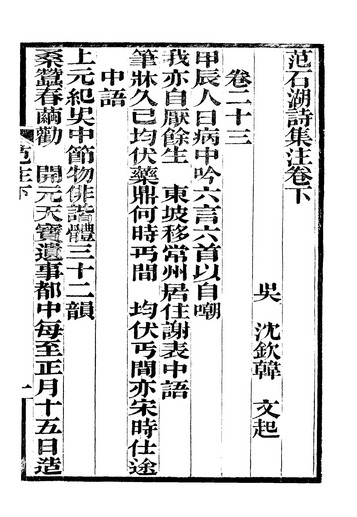 范石湖詩集注卷下
吳　沈欽韓　文起
卷二十三
甲辰人日病中吟六言六首以自嘲
我亦自厭餘生　東坡移常州居住謝表中語
筆牀久已均伏藥鼎何時丐閒　均伏丐閒亦宋時仕途
中語
上元紀吳中節物俳諧體三十二韻
桑蠶春繭勸　開元天寶遺事都中每至正月十五日造
范注下
一